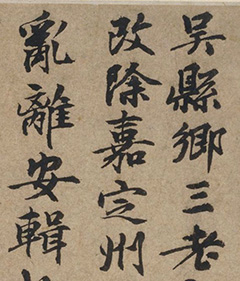 吴縣鄉三老
改除嘉定州
亂離安輯